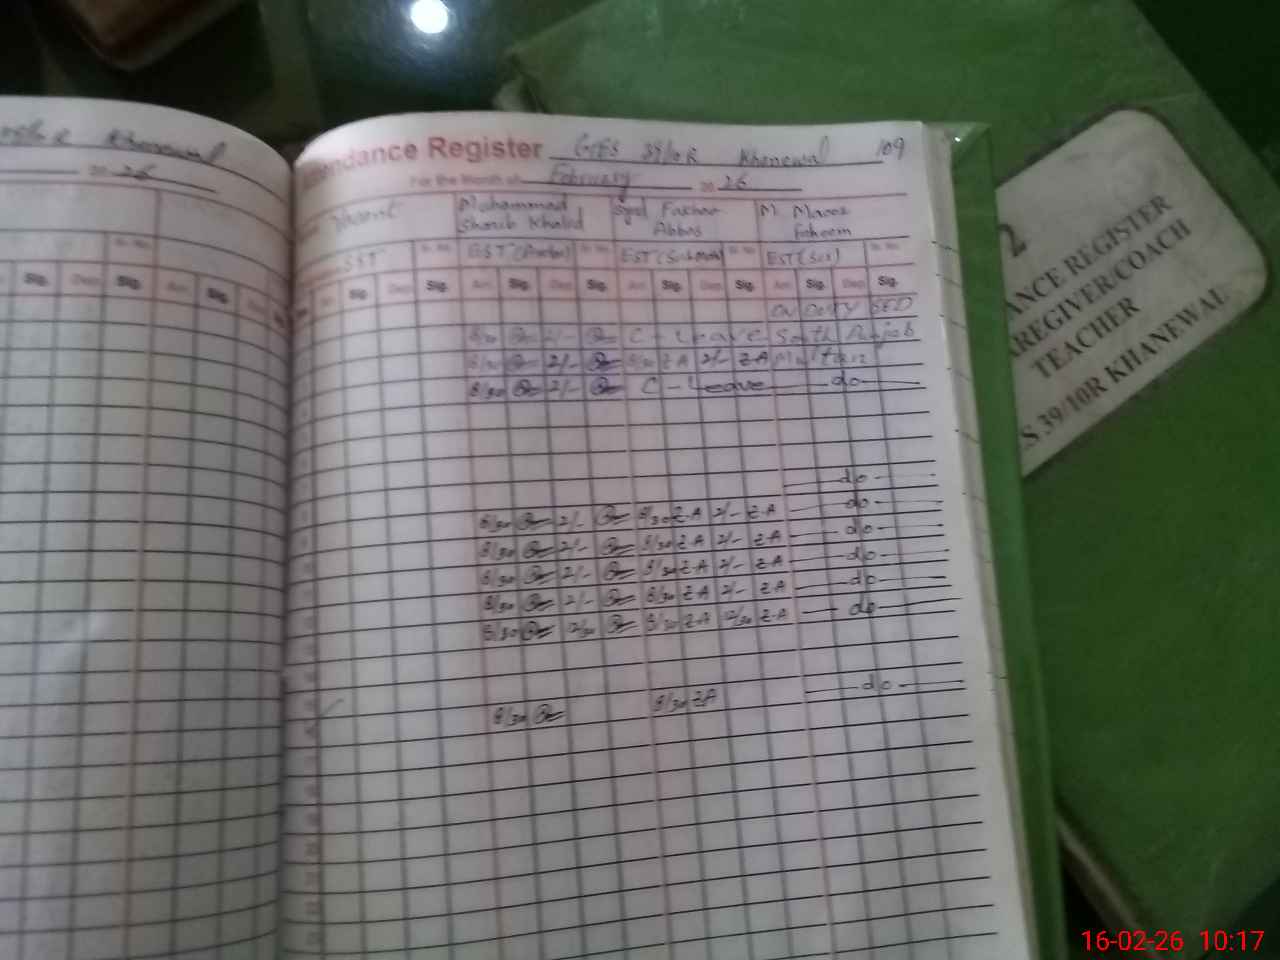 Khanewal
20 26
Attendance Register GES 39/10R Khanewal 109
For the Month of February 20 26
Vacant
Muhammad Shoaib Khalid
Syed Fakhar Abbas
M. Maaz Faheem
SST
EST (Sci)
Sig. Dep. Sig.
Sig. Dep. Sig. Arr. Sig. Dep. Sig. Arr. Sig. Dep. Sig. Arr. Sig. Dep. Sig.
On Duty SED
8/30 2/- C - Leave South Punjab
8/30 2/- 8/30 Z.A 2/- Z.A Multan
8/30 2/- C - Leave do
do
8/30 2/- 8/30 Z.A 2/- Z.A do
8/30 2/- 8/30 Z.A 2/- Z.A do
8/30 2/- 8/30 Z.A 2/- Z.A do
8/30 2/- 8/30 Z.A 2/- Z.A do
8/30 12/30 8/30 Z.A 12/30 Z.A do
8/30 8/30 Z.A do
2
ANCE REGISTER
AREGIVER/COACH
TEACHER
S 39/10R KHANEWAL
16-02-26 10:17